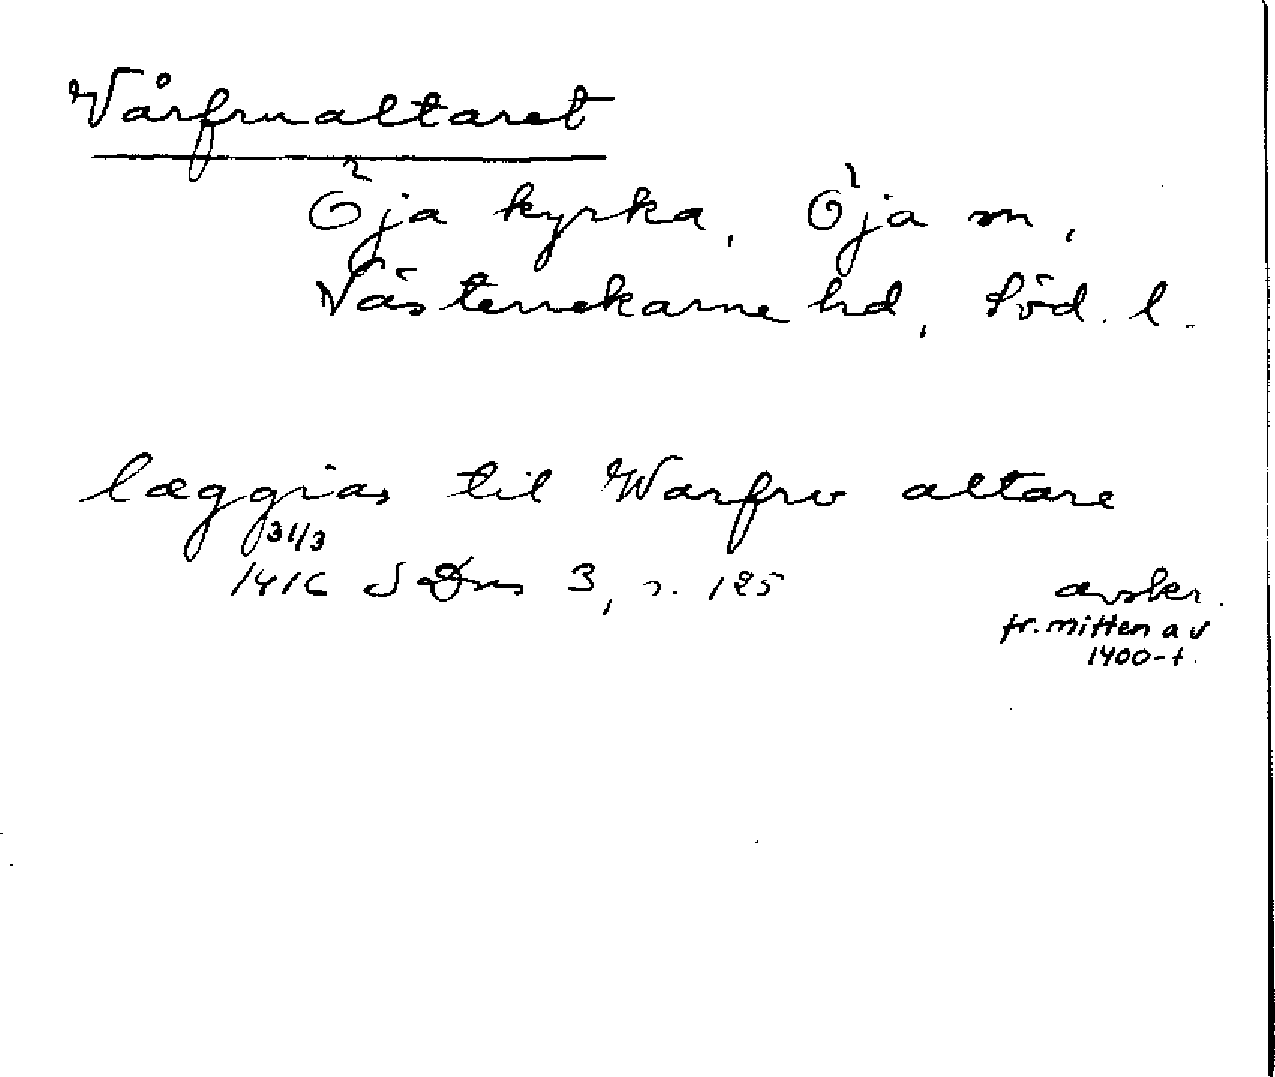 Vårfrualtaret
Öja kyrka, Öja sn,
Västerrekarne hd, Söd. l.
læggias til Warfrv altare
31/3
1416 SDns 3, s. 125 avskr.
fr. mitten av
1400-t.